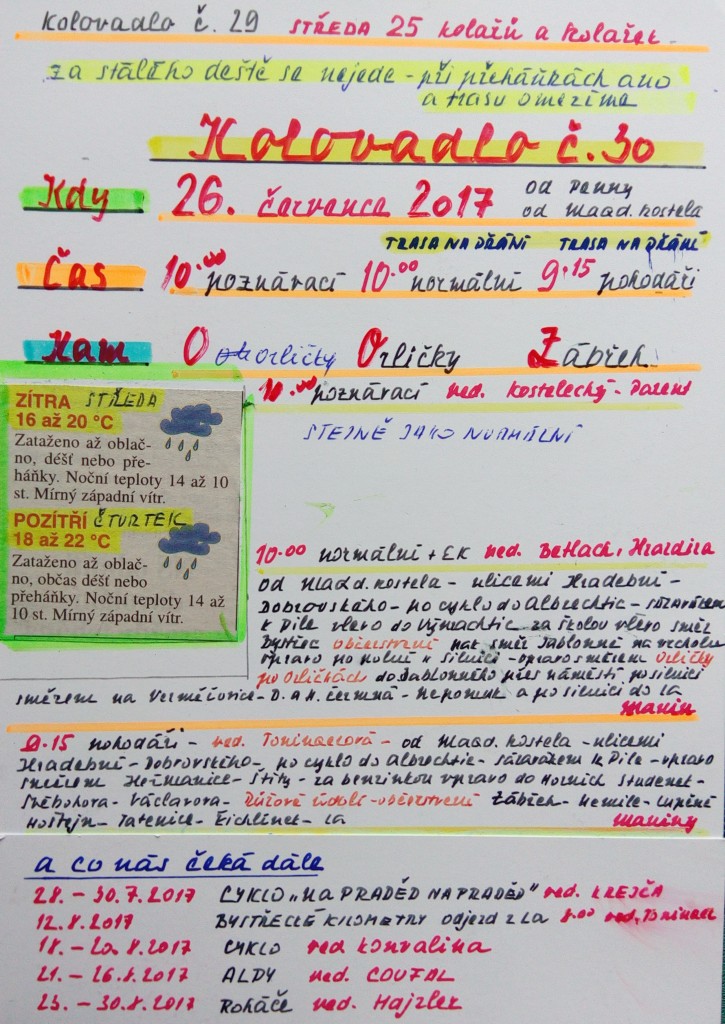 Kolovadlo č. 29 STŘEDA 25 kolařů a kolařek
za stálého deště se nejede - při přeháňkách ano
a trasu omezíme
Kolovadlo č. 30
Kdy 26. července 2017 od Penny
od Maad. kostela
TRASA NA PŘÁNÍ TRASA NA PŘÁNÍ
Čas 10.00 poznávací 10.00 normální 9.15 pohodáři
Kam O Orličky Orličky Zábřeh
10.00 poznávací ved. Kostelecký -
STEJNĚ JAKO NORMÁLNÍ
ZÍTRA STŘEDA
16 až 20 °C
Zataženo až oblač-
no, déšť nebo pře-
háňky. Noční teploty 14 až 10
st. Mírný západní vítr.
POZÍTŘÍ ČTVRTEK
18 až 22 °C
Zataženo až oblač-
no, občas déšť nebo
přeháňky. Noční teploty 14 až
10 st. Mírný západní vítr.
10.00 normální + EK ved. Betlach, Hrazdira
od Maad. kostela - ulicemi Hradební -
Dobrovského - po cyklo do Albrechtic -
k Pile vlevo do Výprachtic za školou vlevo směr
Bystřec občerstvení pak směr Jablonné na vrcholu
vpravo po polní k silnici - vpravo směrem Orličky
po Orličkách do Jablonného přes náměstí po silnici
směrem na Verměřovice - D. a H. Čermná - Nepomuk a po silnici do LA
Mavin
9.15 pohodáři - ved. Toninacová - od Maad. kostela - ulicemi
Hradební - Dobrovského - po cyklo do Albrechtic - k Pile - vpravo
směrem Heřmanice - Štíty - za benzinkou vpravo do Horních Studenek -
Svébohova - Václavova - Růžové údolí - občerstvení Zábřeh - Nemile - Lupěné
Hoštejn - Tatenice - Eichlinek - LA
Maviny
a co nás čeká dále
28. - 30.7.2017 CYKLO „NA PRADĚD NA PRADĚD" ved. KREJČA
12.8.2017 BYSTŘECKÉ KILOMETRY odjezd z LA 8.00 ved. Toninac
18. - 20.8.2017 CYKLO ved Konvalina
21. - 26.8.2017 ALPY ved. COUFAL
25. - 30.8.2017 Roháče ved. Hajzler